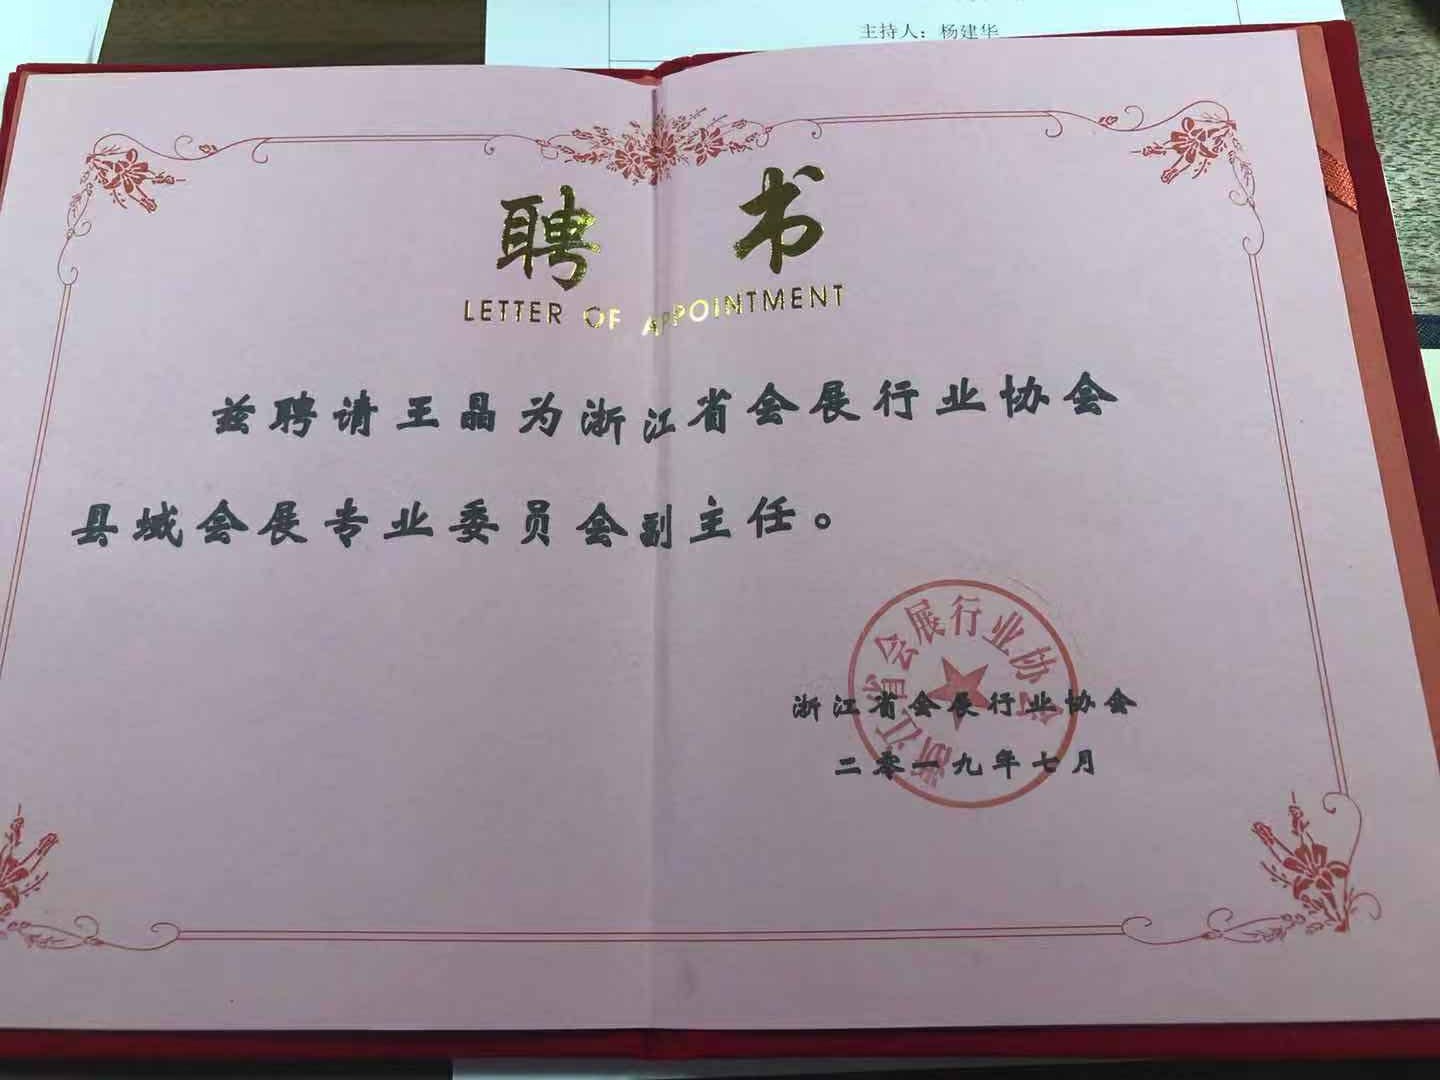 主持人：杨建华
聘书
LETTER OF APPOINTMENT
兹聘请王晶为浙江省会展行业协会
县域会展专业委员会副主任。
浙江省会展行业协会
浙江省会展行业协会
二零一九年七月